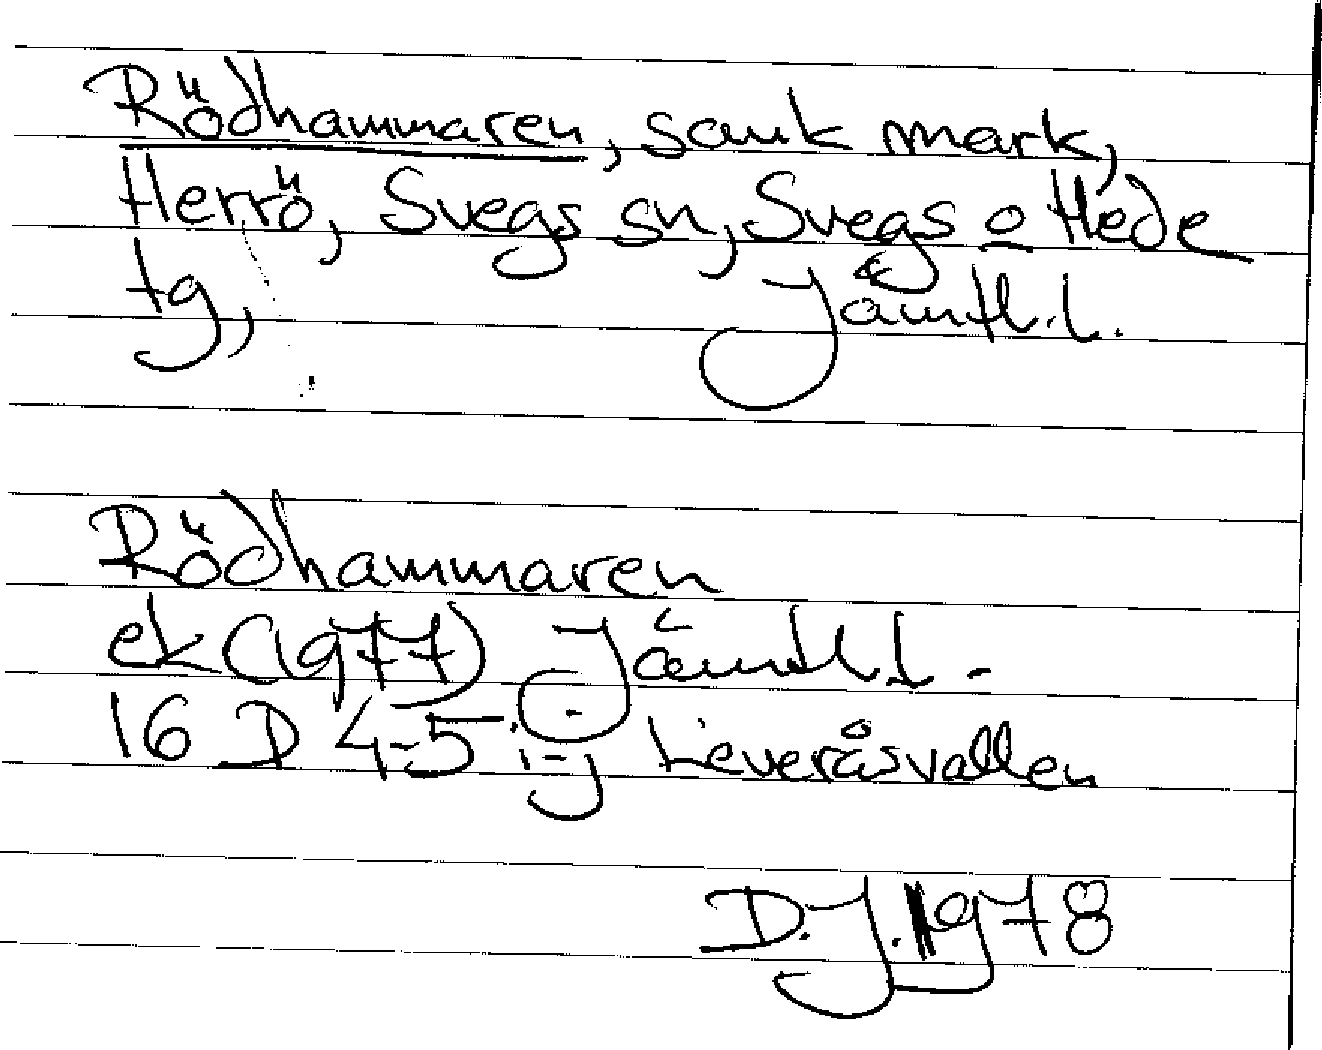 Rödhammaren, sank mark,
Herrö, Svegs sn, Svegs o Hede
tg, Jämtl. l.
Rödhammaren
ek (1977) Jämtl l.
16 D 4-5 i-j Leveråsvallen
D.J. 1978